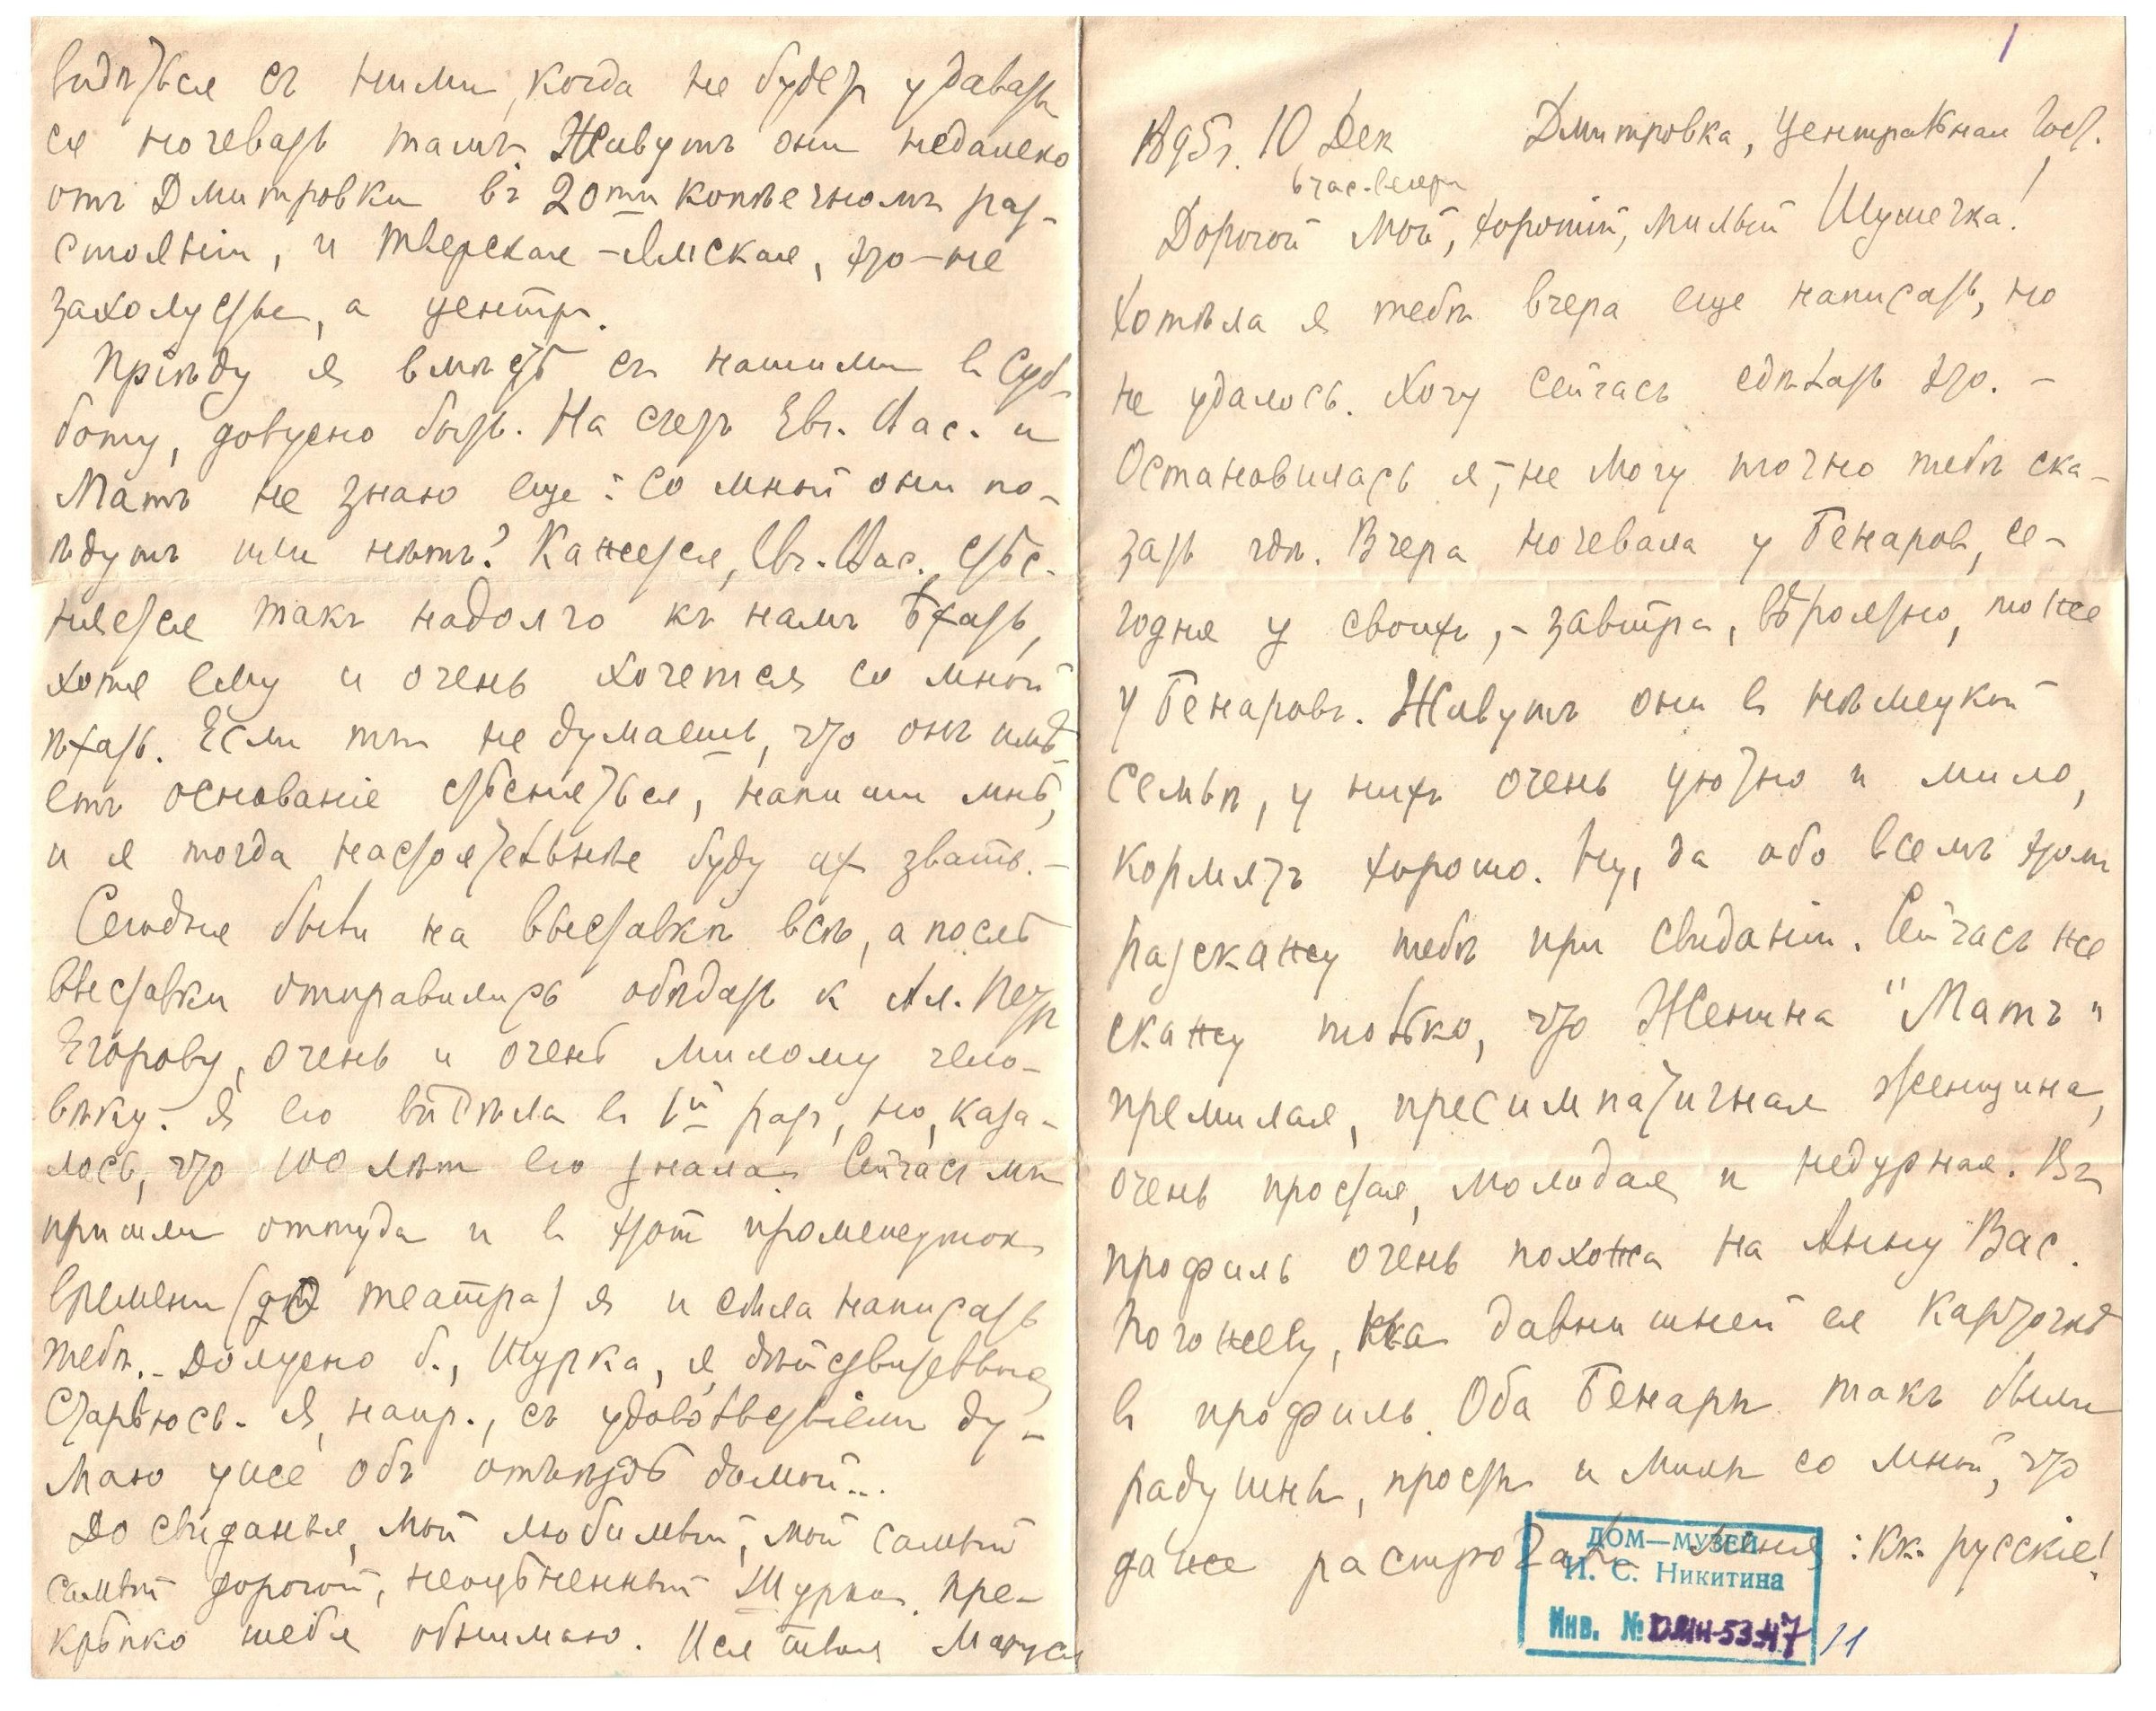 1
1895г. 10 Дек Дмитровка, Центральная Гост.
6 час. вечера
Дорогой мой, хороший, милый Шушечка!
Хотѣла я тебѣ вчера еще написать, но
не удалось. Хочу сейчасъ сдѣлать это. –
Остановилась я, – не могу точно тебѣ ска-
зать гдѣ. Вчера ночевала у Бенаров, се-
годня у своихъ, – завтра, вѣроятно, тоже
у Бенаровъ. Живутъ они в нѣмецкой
семьѣ, у нихъ очень уютно и мило,
кормятъ хорошо. Ну, да обо всемъ этом
разскажу тебѣ при свиданіи. Сейчасъ же
скажу только, что Женина "Мать"
премилая, пресимпатичная женщина,
очень простая, молодая и недурная. Въ
профиль очень похожа на Анну Вас.
Погожеву, на давнишней ея карточкѣ
в профиль. Оба Бенара такъ были
радушны, просты и милы со мной, что
даже растрогали меня: кк. русскіе!
ДОМ—МУЗЕЙ
И. С. Никитина
Инв. № ДМН-5347/11
видѣться съ ними, когда не будет удавать
ся ночевать тамъ. Живутъ они недалеко
отъ Дмитровки въ 20ти копѣечномъ раз-
стояніи, и Тверская-Ямская, это – не
захолустье, а центръ.
Пріѣду я вмѣстѣ съ нашими в Суб-
боту, должно быть. На счетъ Евг. Вас. и
Мать не знаю еще: со мной они по-
ѣдутъ или нѣтъ? Кажется, Евг. Вас. стѣс-
няется такъ надолго къ намъ ѣхать,
хотя ему и очень хочется со мной
ѣхать. Если ты не думаешь, что онъ имѣ-
етъ основаніе стѣсняться, напиши мнѣ,
и я тогда настоятельнѣе буду их звать. –
Сегодня были на выставкѣ всѣ, а послѣ
выставки отправились обѣдать к Ал. Петр
Егорову, очень и очень милому чело-
вѣку. Я его видѣла в 1й раз, но, каза-
лось, что 100 лѣт его знала. Сейчас мы
пришли оттуда и в этот промежуток
времени (до театра) я и сѣла написать
тебѣ. – Должно б., Шурка, я дѣйствительно
старѣюсь. Я, напр., съ удовольствіем ду-
маю уже объ отъѣздѣ домой...
До свиданья, мой любимый, мой самый
самый дорогой, неоцѣненный Шурка. Пре-
крѣпко тебя обнимаю. Вся твоя Маруся